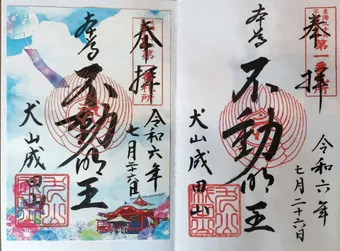 奉拝
本尊
不動明王
令和六年
七月二十六日
犬山成田山
奉拝
第一番
本尊
不動明王
令和六年
七月二十六日
犬山成田山